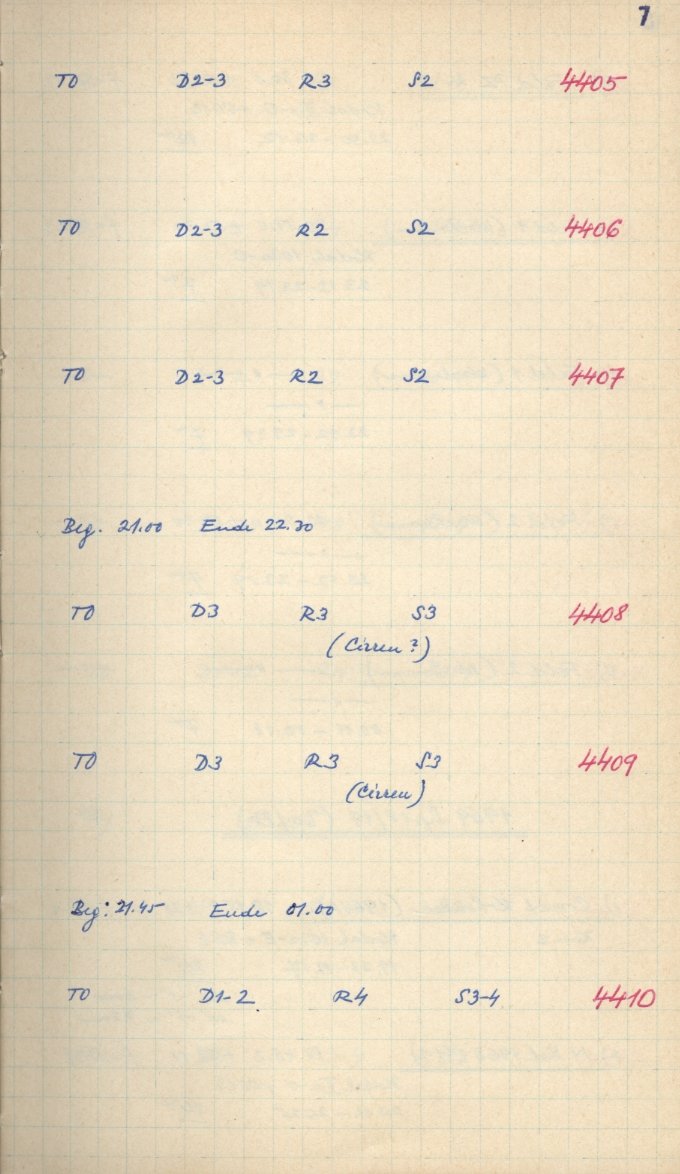 7
T0 D2-3 R3 S2 4405
T0 D2-3 R2 S2 4406
T0 D2-3 R2 S2 4407
Beg. 21.00 Ende 22.30
T0 D3 R3 S3 4408
(Cirren?)
T0 D3 R3 S3 4409
(Cirren)
Beg: 21.45 Ende 01.00
T0 D1-2 R4 S3-4 4410